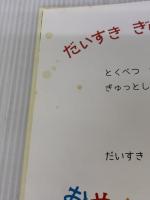 だいすき ぎ
とくべつ
ぎゅっとし
だいすき